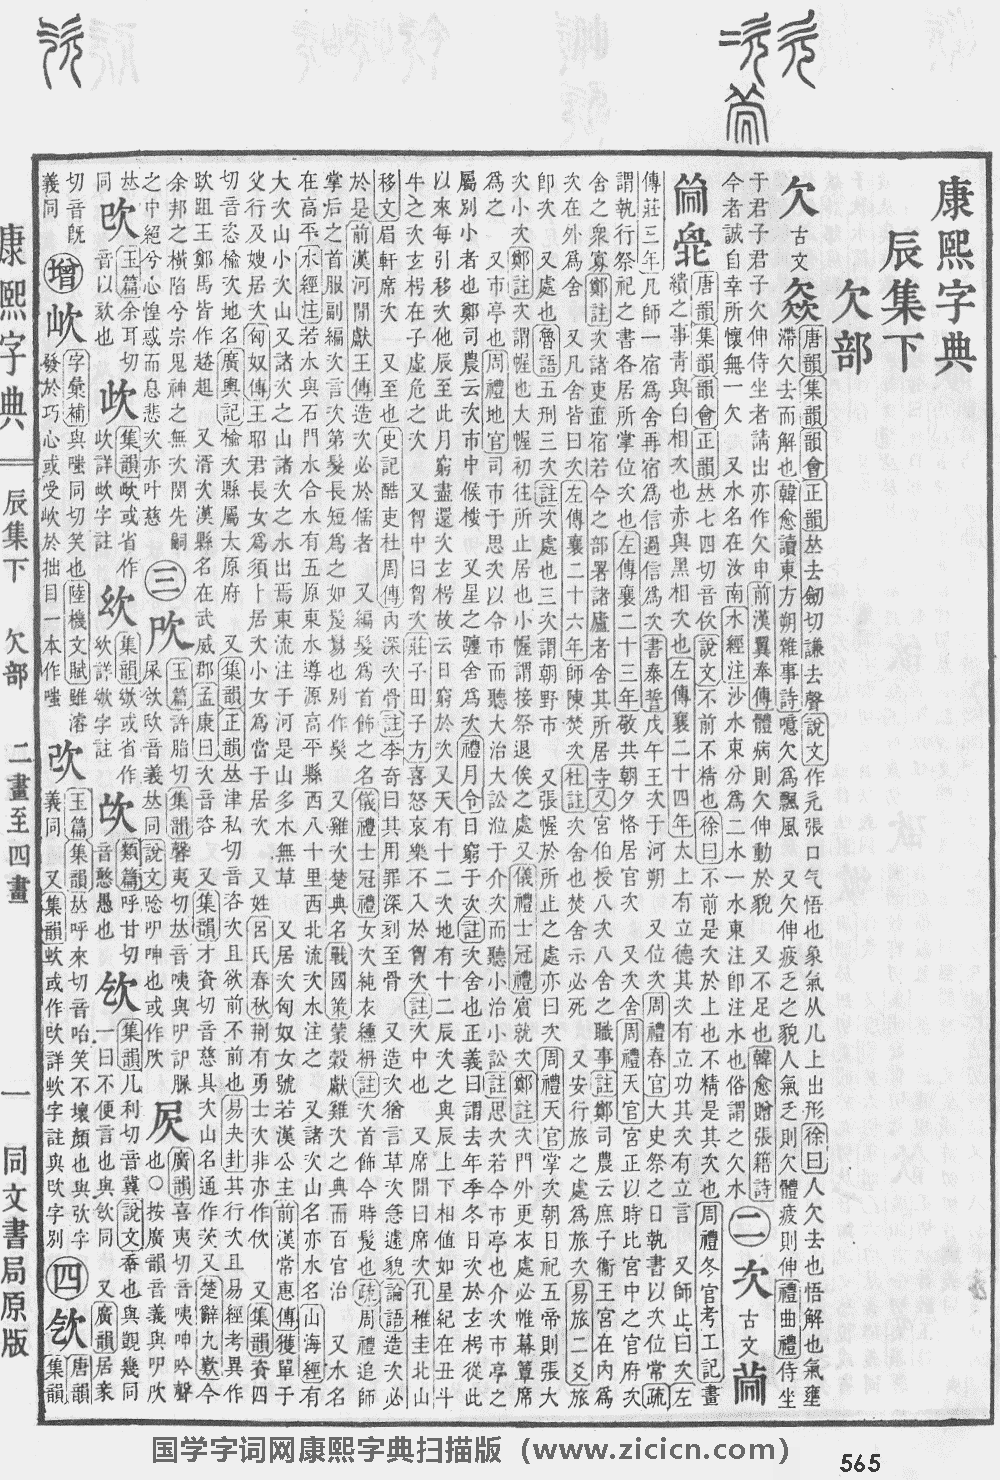 康熙字典
辰集下
欠部
唐韻集韻韻會正韻𠀤去劒切謙去聲說文作㒫張口气悟也象氣从儿上出形徐曰人欠去也悟解也氣壅
欠 古文
滯欠去而解也韓愈讀東方朔雜事詩噫欠為飄風 又欠伸疲乏之貌人氣乏則欠體疲則伸禮曲禮侍坐
于君子君子欠伸侍坐者請出亦作欠申前漢翼奉傳體病則欠伸動於貌 又不足也韓愈贈張籍詩
今者誠自幸所懷無一欠 又水名在汝南水經注沙水東分為二水一水東注卽注水也俗謂之欠水 二 次 古文
唐韻集韻韻會正韻𠀤七四切音佽說文不前不精也徐曰不前是次於上也不精是其次也周禮冬官考工記畫
繢之事靑與白相次也赤與黑相次也左傳襄二十四年太上有立德其次有立功其次有立言 又師止曰次左
傳莊三年凡師一宿為舍再宿為信過信為次書泰誓戊午王次于河朔 又位次周禮春官大史祭之日執書以次位常疏
謂執行祭祀之書各居所掌位次也左傳襄二十三年敬共朝夕恪居官次 又次舍周禮天官宮正以時比宮中之官府次
舍之衆寡鄭註次諸吏直宿若今之部署諸廬者舍其所居寺又宮伯授八次八舍之職事註鄭司農云庶子衞王宮在內為
次在外為舍 又凡舍皆曰次左傳襄二十六年師陳焚次杜註次舍也焚舍示必死 又安行旅之處為旅次易旅二爻旅
卽次 又處也魯語五刑三次註次處也三次謂朝野市 又張幄於所止之處亦曰次周禮天官掌次朝日祀五帝則張大
次小次鄭註次謂幄也大幄初往所止居也小幄謂接祭退俟之處又儀禮士冠禮賓就次鄭註次門外更衣處必帷幕簟席
為之 又市亭也周禮地官司市于思次以令市而聽大治大訟涖于介次而聽小治小訟註思次若今市亭也介次市亭之
屬別小者也鄭司農云次市中候樓 又星之躔舍為次禮月令日窮于次註次舍也正義曰謂去年季冬日次於玄枵從此
以來每引移次他辰至此月窮盡還次玄枵故云日窮於次又天有十二次地有十二辰次之與辰上下相值如星紀在丑斗
牛之次玄枵在子虛危之次 又胷中曰胷次莊子田子方喜怒哀樂不入於胷次註次中也 又席閒曰席次孔稚圭北山
移文眉軒席次 又至也史記酷吏杜周傳內深次骨註李奇曰其用罪深刻至骨 又造次猶言草次急遽貌論語造次必
於是前漢河閒獻王傳造次必於儒者 又編髮為首飾之名儀禮士冠禮女次純衣纁袡註次首飾今時髲也疏周禮追師
掌后之首服副編次言次第髮長短為之如髲鬄也別作髮 又雞次楚典名戰國策蒙穀獻雞次之典而百官治 又水名
在高平水經注若水與石門水合水有五原東水導源高平縣西八十里西北流次水注之 又諸次山名亦水名山海經有
大次山小次山又諸次之山諸次之水出焉東流注于河是山多木無草 又居次匈奴女號若漢公主前漢常惠傳獲單于
父行及嫂居次匈奴傳王昭君長女為須卜居次小女為當于居次 又姓呂氏春秋荆有勇士次非亦作佽 又集韻資四
切音恣楡次地名廣輿記楡次縣屬太原府 又集韻正韻𠀤津私切音咨次且欲前不前也易夬卦其行次且易經考異作
趑趄王鄭馬皆作趑趄 又湑次漢縣名在武威郡孟康曰次音咨 又集韻才資切音慈具次山名通作茨又楚辭九歎今
余邦之橫陷兮宗鬼神之無次閔先嗣
之中絕兮心惶惑而息悲次亦叶慈 三
玉篇許脂切集韻馨夷切𠀤音咦與吚訵
音義𠀤同說文唸吚呻也或作
廣韻喜夷切音咦呻吟聲
也○按廣韻音義與吚同
玉篇余耳切
音以欸也
集韻或省作
集韻或省作
類篇呼甘切
音憨愚也
集韻几利切音冀說文㐬也與覬幾同
一曰不便言也與欯同 又廣韻居豙
切音旣
義同 增
字彙補與嗤同切笑也陸機文賦雖濬
發於巧心或受於拙目一本作嗤
玉篇集韻𠀤呼來切音咍笑不壞顏也與字別
義同 又集韻或作
四
唐韻
集韻
康熙字典 辰集下 欠部 二畫至四畫 一 同文書局原版
国学字词网康熙字典扫描版（www.zicicn.com）
565